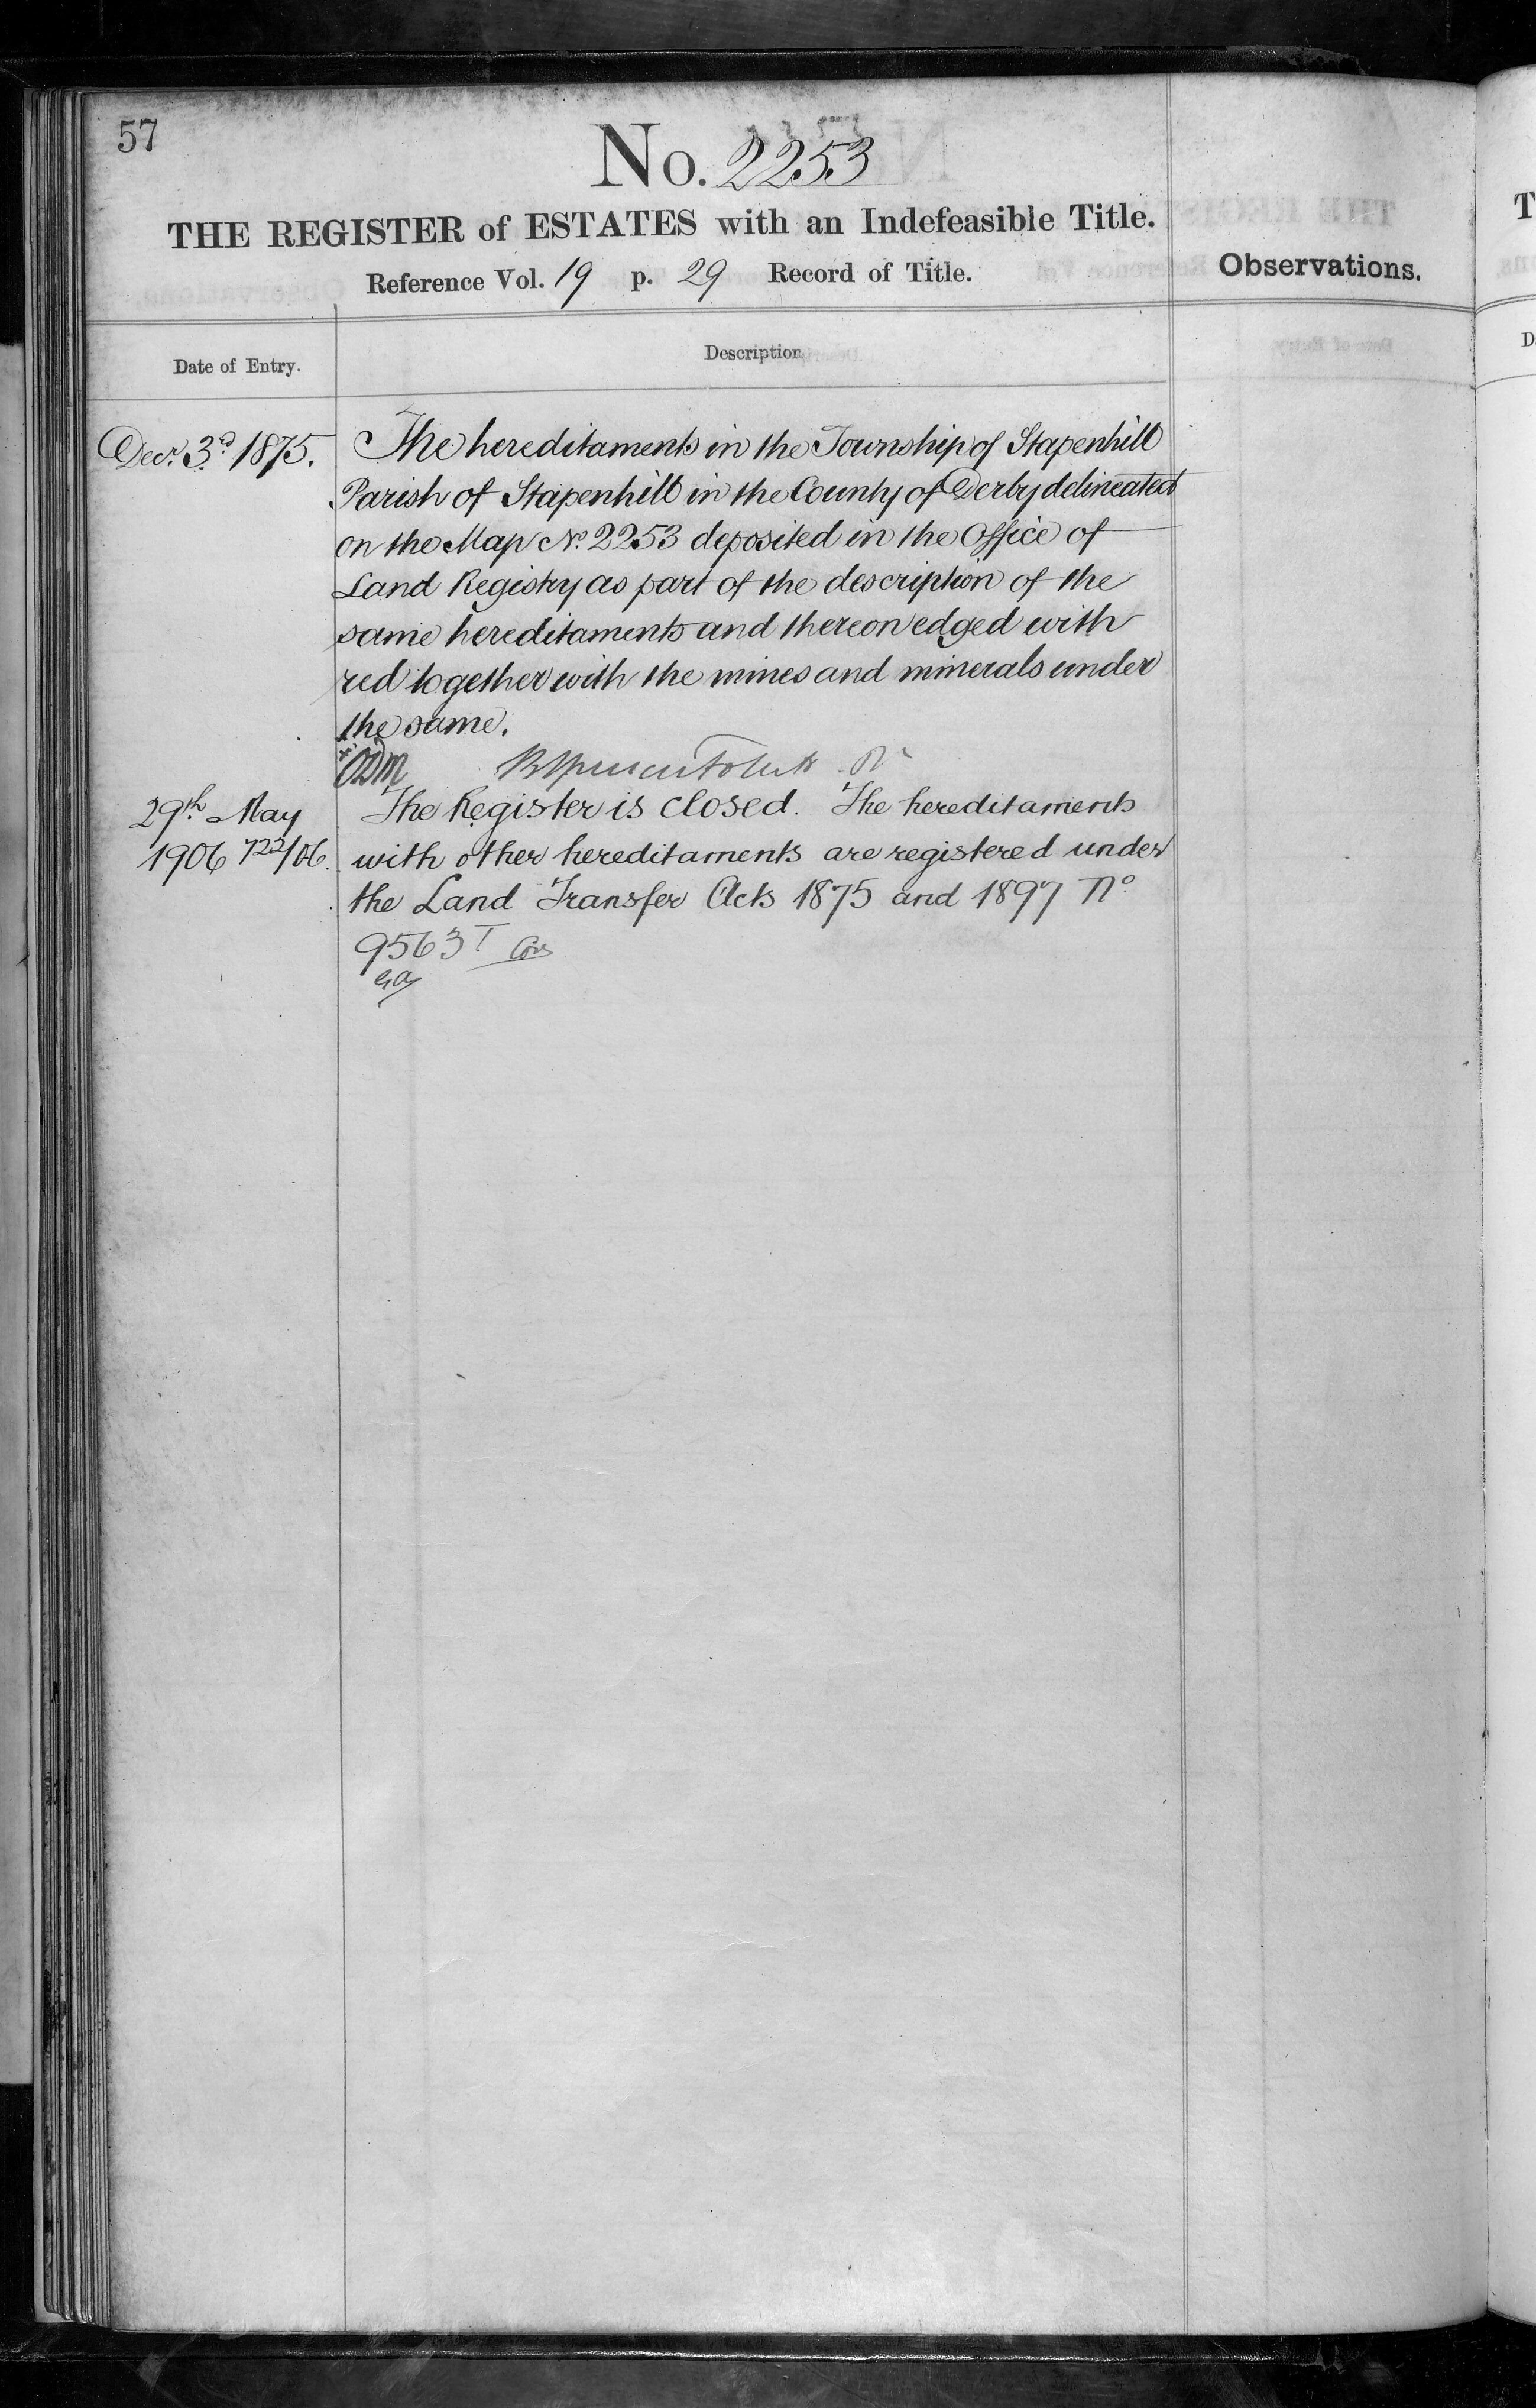 57
No. 2253
THE REGISTER of ESTATES with an Indefeasible Title.
Reference Vol. 19 p. 29 Record of Title.
Observations.
Date of Entry.
Description
Decr. 3d 1875.
The hereditaments in the Township of Stapenhill
Parish of Stapenhill in the County of Derby delineated
on the Map No. 2253 deposited in the Office of
Land Registry as part of the description of the
same hereditaments and thereon edged with
red together with the mines and minerals under
the same.
29th May
1906 722/06.
The Register is closed. The hereditaments
with other hereditaments are registered under
the Land Transfer Acts 1875 and 1897 No
9563